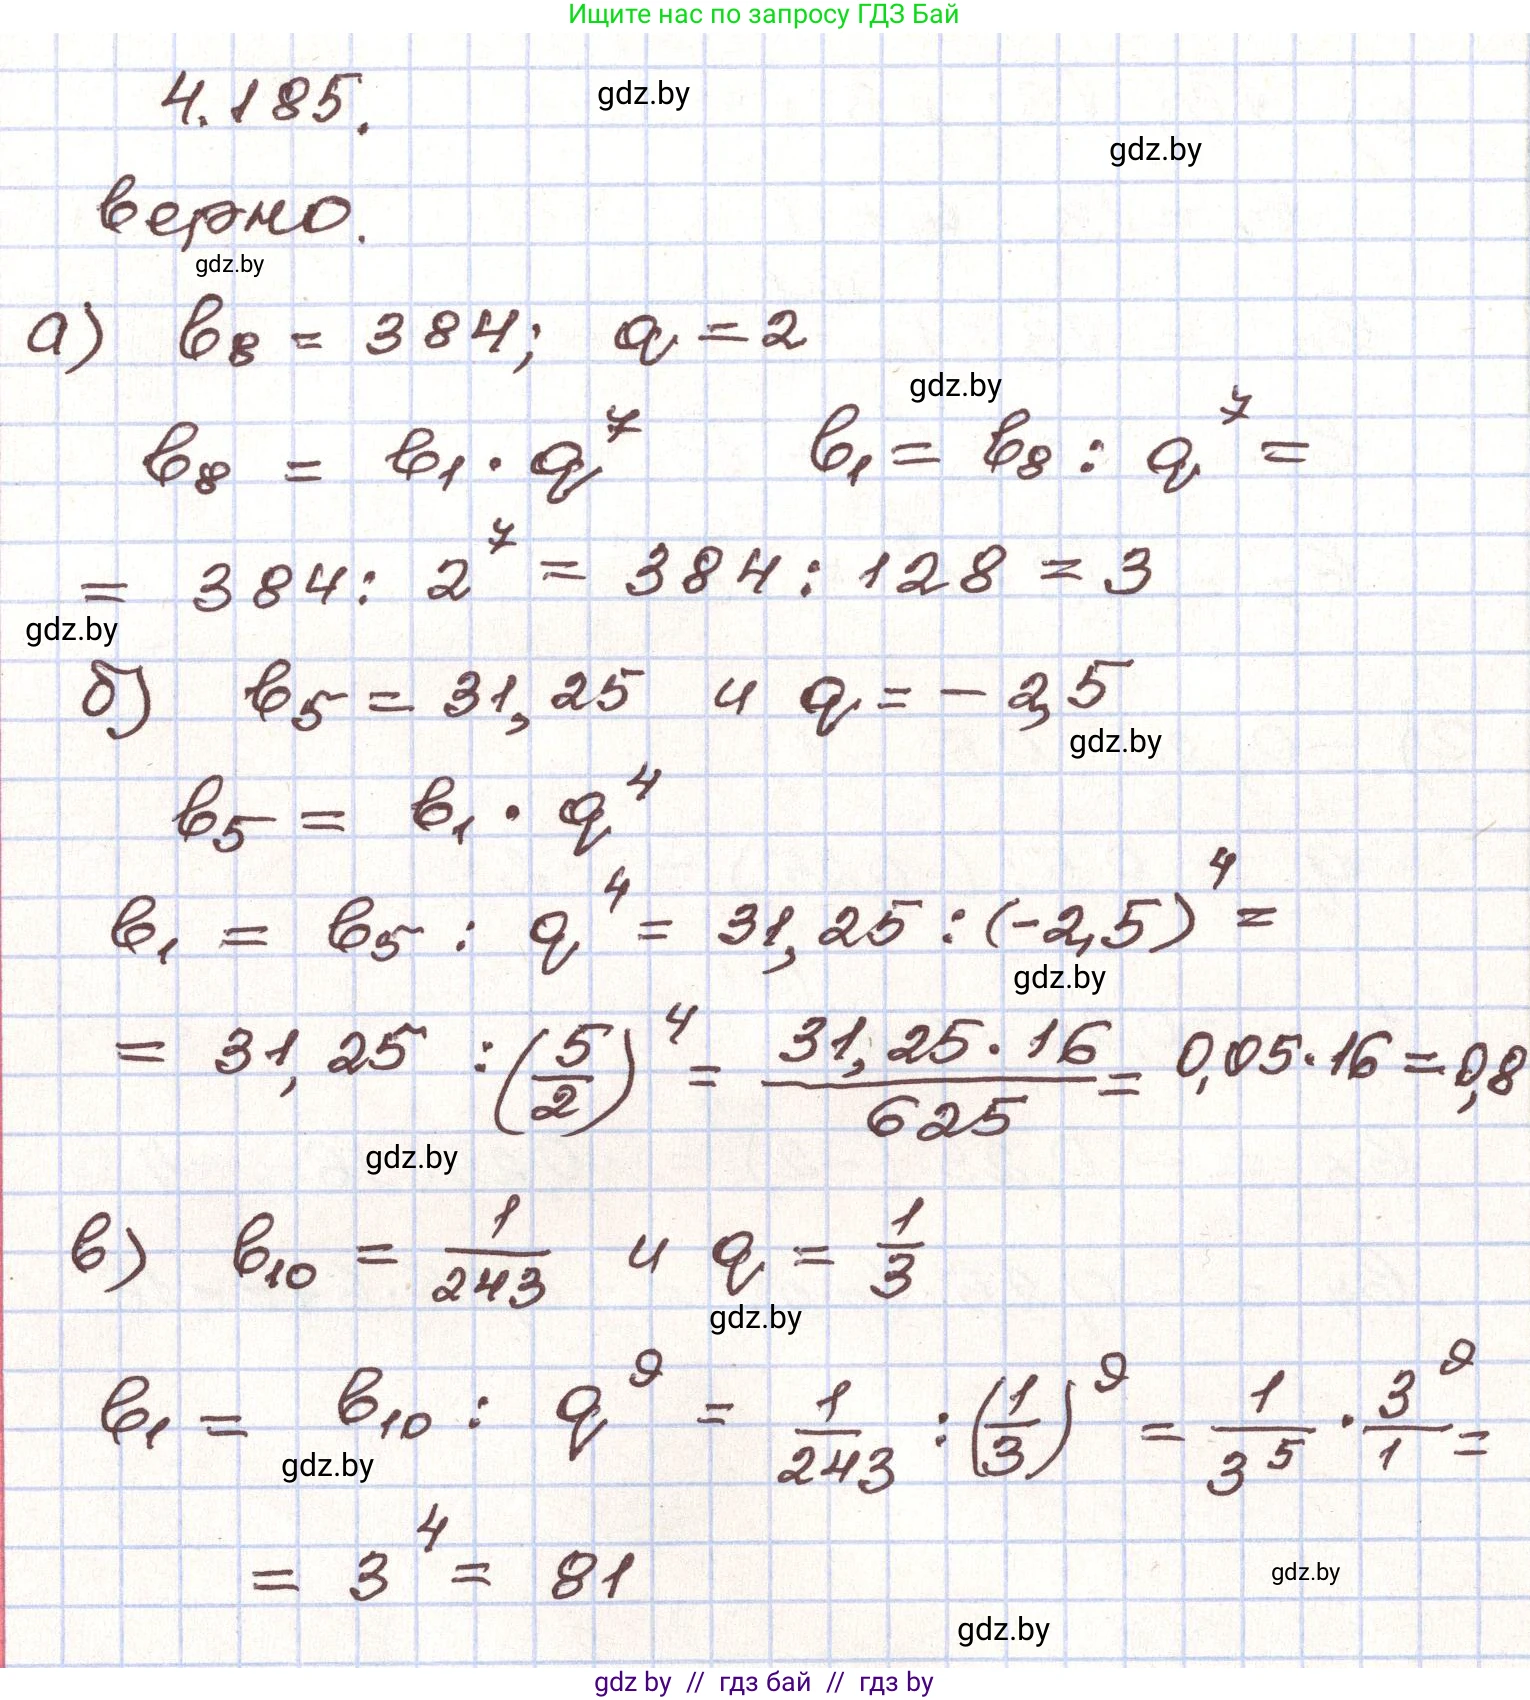 Ищите нас по запросу ГДЗ Бай
4.185.
gdz.by
gdz.by
верно.
gdz.by
а) b₈ = 384; q = 2
gdz.by
b₈ = b₁ · q⁷ b₁ = b₈ : q⁷ =
= 384 : 2⁷ = 384 : 128 = 3
gdz.by
б) b₅ = 31,25 и q = - 2,5
gdz.by
b₅ = b₁ · q⁴
b₁ = b₅ : q⁴ = 31,25 : (-2,5)⁴ =
gdz.by
= 31,25 : (5/2)⁴ = 31,25 · 16 / 625 = 0,05 · 16 = 0,8
gdz.by
в) b₁₀ = 1/243 и q = 1/3
gdz.by
b₁ = b₁₀ : q⁹ = 1/243 : (1/3)⁹ = 1/3⁵ · 3⁹/1 =
gdz.by
= 3⁴ = 81
gdz.by
gdz.by
gdz by // гдз бай // гдз by